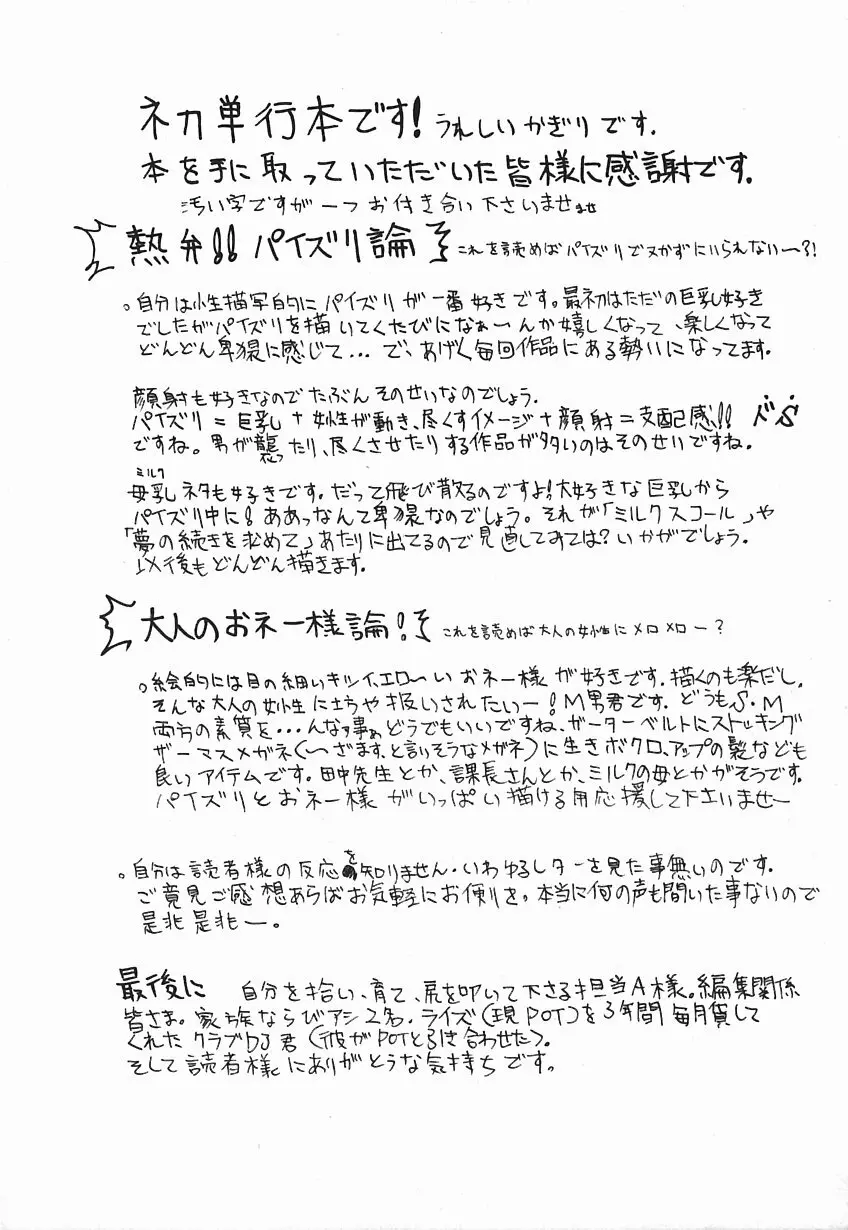 ネカ単行本です!うれしいかぎりです.
本を手に取っていただいた皆様に感謝です.
汚い字ですが一つお付き合い下さいませませ
熱弁!!パイズリ論 これを読めばパイズリでヌかずにいられないー?!
。自分は性描写的にパイズリが一番好きです。最初はただの巨乳好き
でしたがパイズリを描いてくたびになぁーんか嬉しくなって、楽しくなって
どんどん卑猥に感じて...で、あげく毎回作品にある勢いになってます.
顔射も好きなのでたぶんそのせいなのでしょう.
パイズリ=巨乳+女性が動き、尽くすイメージ+顔射=支配感!! ドS
ですね。男が襲ったり、尽くさせたりする作品が多いのはそのせいですね.
ミルク
母乳ネタも好きです。だって飛び散るのですよ!大好きな巨乳から
パイズリ中に!ああっなんて卑猥なのでしょう。それが「ミルクスコール」や
「夢の続きを求めて」あたりに出てるので見直してみては?いかがでしょう.
以後もどんどん描きます.
大人のおネー様論! これを読めば大人の女性にメロメロー?
。絵的には目の細いキツイ、エロ〜いおネー様が好きです.描くのも楽だし.
そんな大人の女性に扱いされたいー!M男君です.どうもS・M
両方の素質を...んな事ぁどうでもいいですね、ガーターベルトにストッキング
ザーマスメガネ(〜ざます、と言いそうなメガネ)に生きボクロ、アップの髪なども
良いアイテムです.田中先生とか、課長さんとか、ミルクの母とかがそうです.
パイズリとおネー様がいっぱい描ける用応援して下さいませー
。自分は読者様の反応を知りません.いわゆるレターを見た事無いのです.
ご意見ご感想あらばお気軽にお便りを,本当に何の声も聞いた事ないので
是非是非ー。
最後に 自分を拾い、育て、尻を叩いて下さる担当A様。編集関係
皆さま。家族ならびアシ2名.ライズ(現POT)を3年間毎月貸して
くれたクラブDJ君(彼がPOTと引き合わせた).
そして読者様にありがとうな気持ちです。